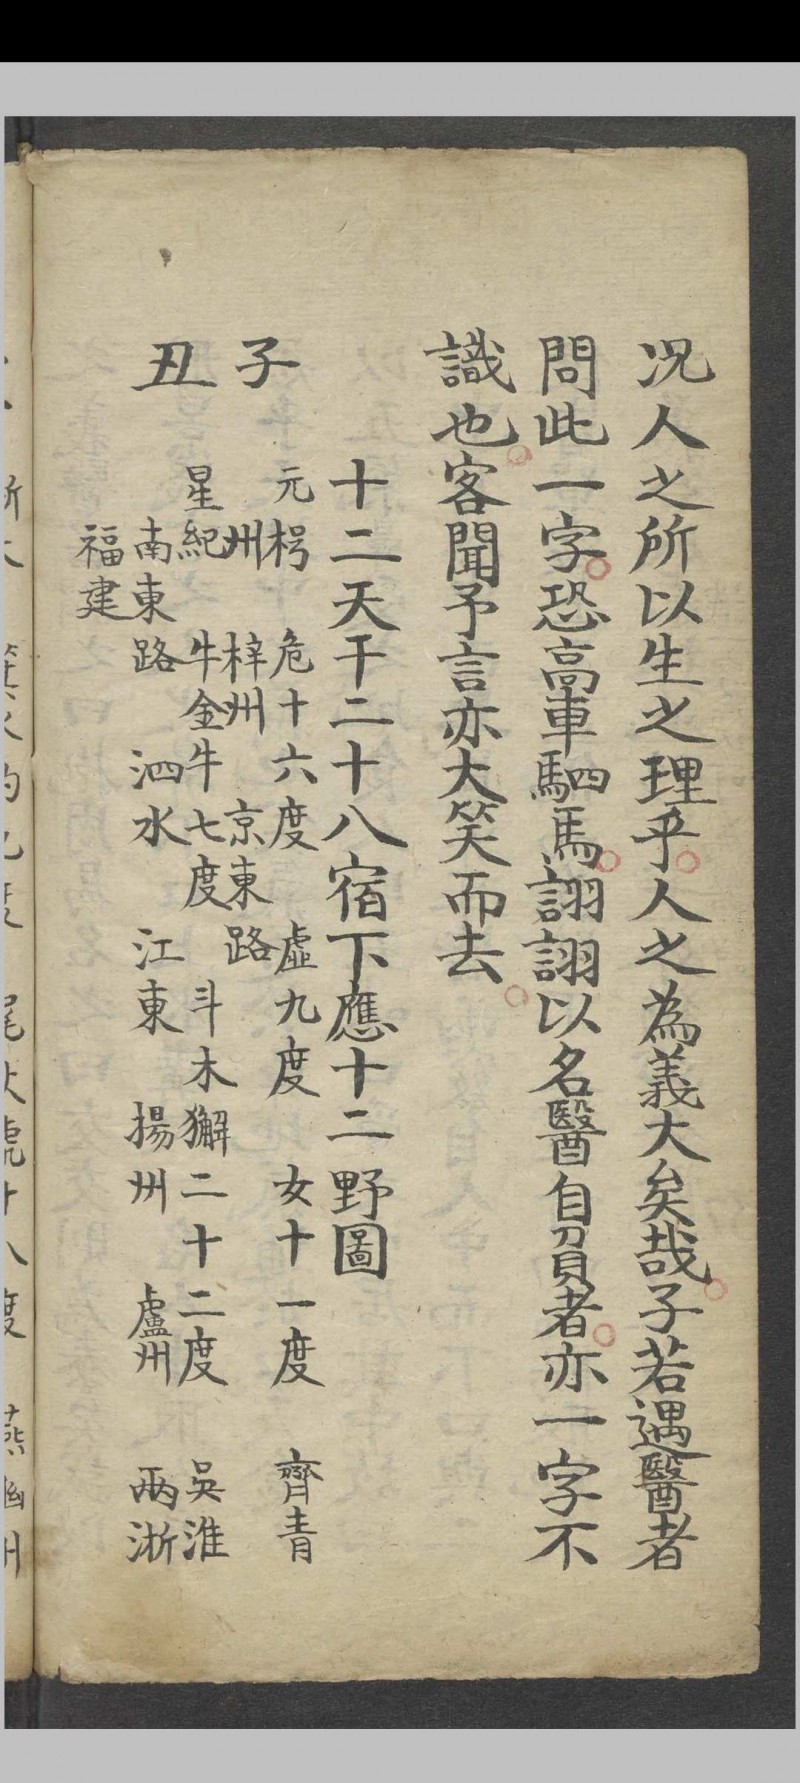 况人之所以生之理乎人之為義大矣哉子若遇醫者
問此一字恐高車駟馬詡詡以名醫自負者亦一字不
識也客聞予言亦大笑而去
十二天干二十八宿下應十二野圖
子 元枵 危十六度 虛九度 女十一度 齊青
州 梓州 京東路
丑 星紀 牛金牛七度 斗木獬二十二度 吳淮
南東路 泗水 江東 揚州 盧州 兩浙
福建